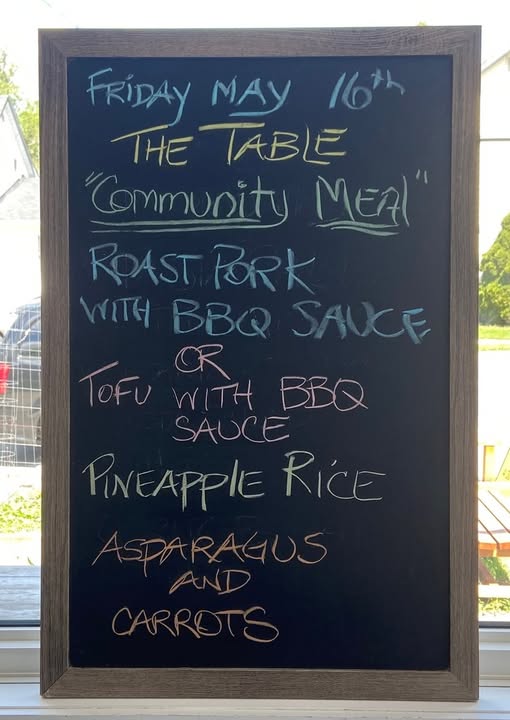 FRIDAY MAY 16th
THE TABLE
"COMMUNITY MEAL"
ROAST PORK
WITH BBQ SAUCE
OR
TOFU WITH BBQ
SAUCE
PINEAPPLE RICE
ASPARAGUS
AND
CARROTS